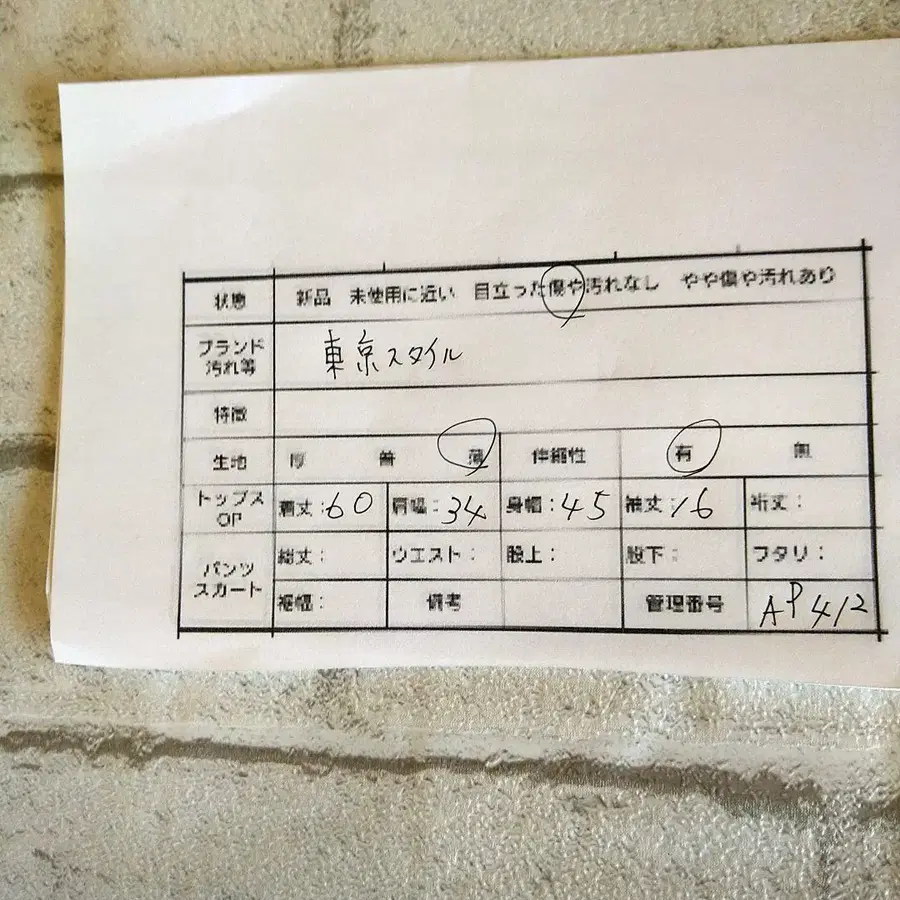 状態 新品 未使用に近い 目立った傷や汚れなし やや傷や汚れあり
ブランド 東京スタイル
汚れ等
特徴
生地 厚 普 薄 伸縮性 有 無
トップス 着丈:60 肩幅:34 身幅:45 袖丈:16 裄丈:
OP
パンツ 総丈: ウエスト: 股上: 股下: ワタリ:
スカート 裾幅: 備考 管理番号 AP412